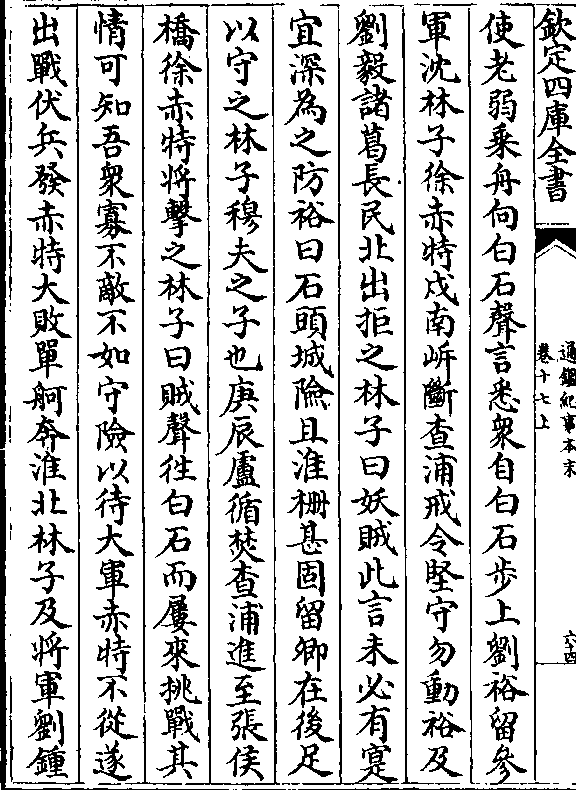 欽定四庫全書
通鑑紀事本末
卷十七上
六十四
使老弱乗舟向白石聲言悉衆自白石步上劉裕留參
軍沈林子徐赤特戍南岸斷查浦戒令堅守勿動裕及
劉毅諸葛長民北出拒之林子曰妖賊此言未必有寔
宜深為之防裕曰石頭城險且淮栅甚固留卿在後足
以守之林子穆夫之子也庚辰盧循焚查浦進至張侯
橋徐赤特将擊之林子曰賊聲徃白石而屢來挑戰其
情可知吾衆寡不敵不如守險以待大軍赤特不從遂
出戰伏兵發赤特大敗單舸奔淮北林子及将軍劉鍾